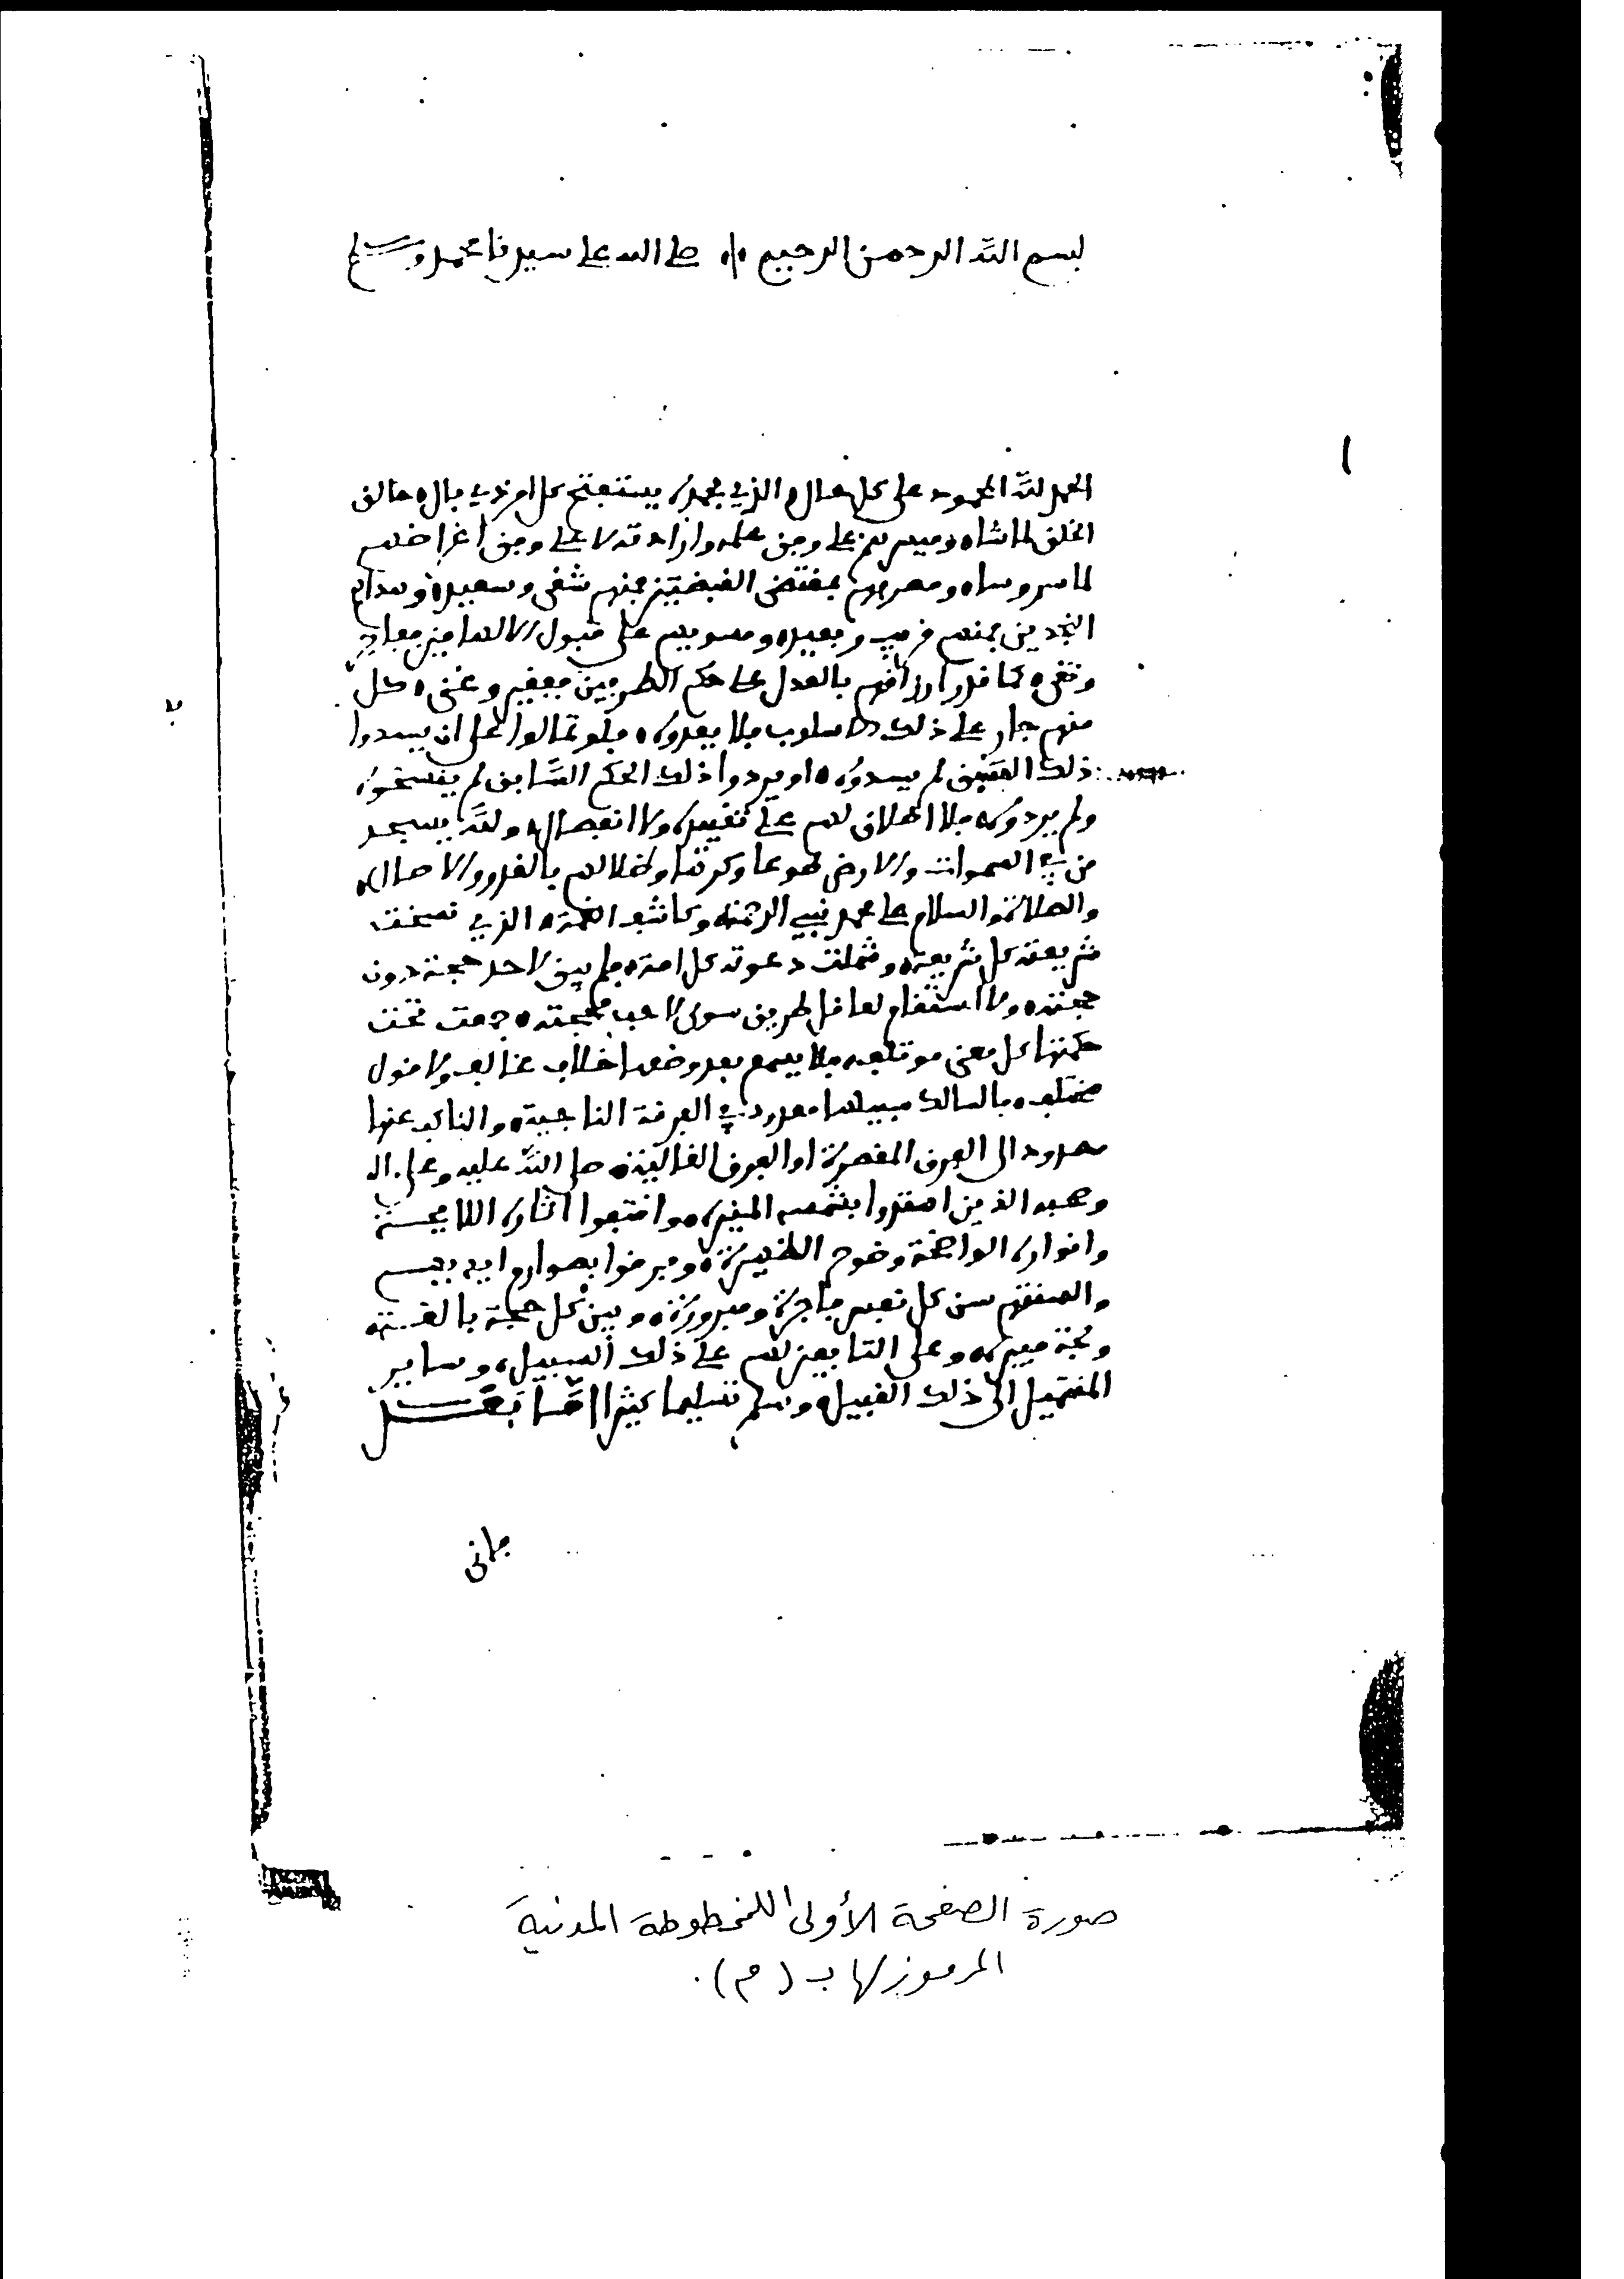 بسم الله الرحمن الرحيم صلى الله على سيدنا محمد وسلم
ا
الحمد لله المحمود على كل حال الذي بحمده يستفتح كل امر ذي بال خالق
الخلق لما شاء وميسرهم على وفق علمه وارادته لا على وفق اغراضهم
لما سر وساء ومصرفهم بمقتضى القبضتين فمنهم شقي وسعيد وهداهم
النجدين فمنهم قريب وبعيد ومسويهم على قبول الالهامين ففاجر
وتقي كما قدر ارزاقهم بالعدل على حكم الطرفين ففقير وغني كل
منهم جار على ذلك الاسلوب فلا يعدوه فلو تمالوا على ان يسدوا
ذلك الفتق لم يسدوه او يردوا ذلك الحكم السابق لم ينسخوه
ولم يردوه فلا اطلاق لهم على تقييده ولا انفصال ولله يسجد
من في السموات والارض طوعا وكرها وظلالهم بالغدو والاصال
والصلاة والسلام على محمد نبي الرحمة وكاشف الغمة الذي نسخت
شريعته كل شريعة وشملت دعوته كل امة فلم يبق لاحد حجة دون
حجته ولا استقام لعاقل طريق سوى لاحب محجته جمعت تحت
حكمتها كل معنى موتلف فلا يسمع بعد وضعها خلاف مخالف ولا قول
مختلف فالسالك سبيلها معدود في الفرقة الناجية والناكب عنها
مصدود الى الفرق المقصرة او الفرق الغالية صلى الله عليه وعلى ال
وصحبه الذين اهتدوا بشمسه المنيرة واقتفوا اثاره اللايحة
وانواره الواضحة وضوح الظهيرة وفرقوا بصوارم ايديهم
والسنتهم بين كل نفس فاجرة ومبرورة وبين كل حجة بالغة
وحجة مبيرة وعلى التابعين لهم على ذلك السبيل وساير
المنتمين الى ذلك القبيل وسلم تسليما كثيرا اما بعد
فاني
صورة الصفحة الأولى للمخطوطة المدنية
المرموز لها ب (م).